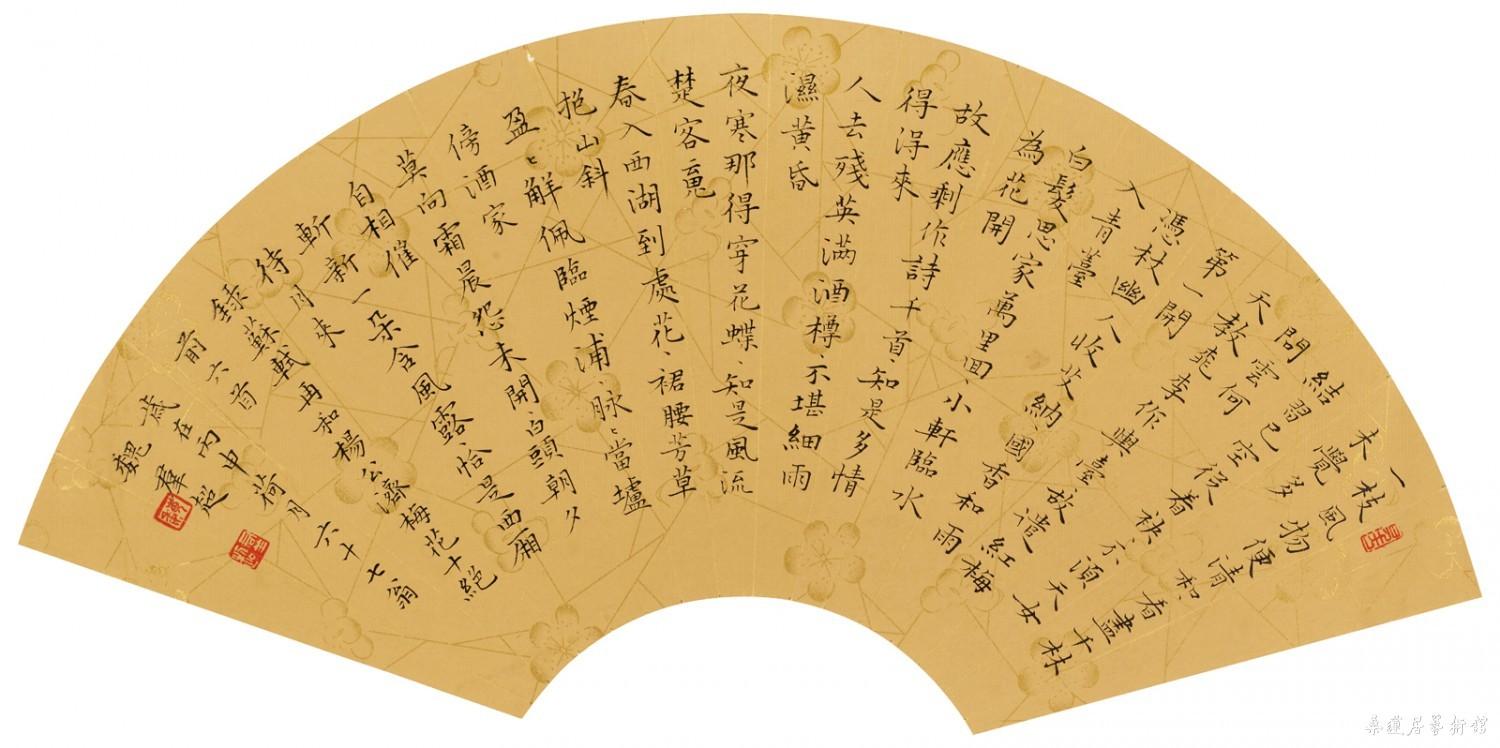 一枝風物便清和、看盡千林
未覺多
結習已空役着袂、不須天女
問雲何
天教桃李作輿臺故遣紅梅
第一開
馮杖幽人收艾納、國香和雨
入青薹
白髮思家萬里回、小軒臨水
為花開
故應剩作詩千首、知是多情
得得來
人去殘英滿酒樽、不堪細雨
濕黃昏
夜寒那得穿花蝶、知是風流
楚客魂
春入西湖到處花、裙腰芳草
抱山斜
盈〻解佩臨煙浦、脉〻當壚
傍酒家
莫向霜晨怨未開、白頭朝夕
自相催
斬新一朵含風露恰是西廂
待月來
錄蘇軾再和楊公濟梅花十絕
前六首
歲在丙申荷月六十七翁
魏羣超
桑蓮居藝術館